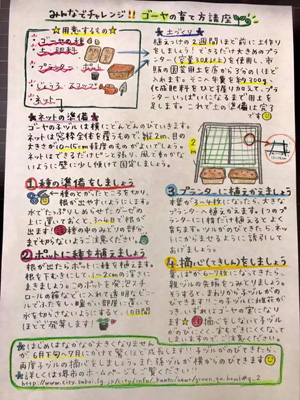 みんなでチャレンジ!! ゴーヤの育て方講座
☆用意するもの☆
ゴーヤの種
土、肥料
プランター
じょうろ、スコップ
ネット
☆土づくり☆
植えつけの2週間ほど前に土作り
しましょう！できるだけ大きめのプラン
ター(容量30L以上)を使用し、市
販の園芸用土を底から3分の1ほど
入れます。そこに牛糞を約300g、
化成肥料をひと握り加えて、プラ
ンターいっぱいになるまで用土を
足します。これで土の準備は完了
です
☆ネットの準備
ゴーヤのネットは横にどんどんのびていきます。
ネットは窓枠全体を覆うもので、縦2m、目の
大きさが10〜15cm程度のものがよいでしょう。
ネットはできるだけピンと張り、風で動かな
いように壁に少し傾けて固定しましょう。
2m
①種の準備をしましょう
種のとがったところを切り、
根が出やすいようにします。
水でたっぷりしめらせたガーゼの
上に置いておくと、3〜4日で根が
出ます！種の中のみどりの部分
まで切らないようご注意ください。
②ポットに種を植えましょう
根が出たらポットに種を植えます。
根を下むきにして、1〜2cmの深さに
まきましょう。このポットを発泡スチ
ロールの箱などに入れて透明なビニー
ルでふたをし、暖かい部屋に置いて
水を切らさないようにすると、10日間
ほどで発芽します！
③プランターに植えかえましょう
本葉が3〜4枚になったら、大きな
プランターへ植えかえます。1つのプラ
ンターに1株だけ植えかえると立派に
育ちます。ツルがのびてきたら、ネット
にからませるように誘引して
あげましょう！
④摘心(てきしん)をしましょう
葉っぱが6〜7枚になってきたら、
親ヅルの先端をつみとりましょう！
そうすると、まわりから子ヅルが
のびていきます！この子ヅルに雌花が
つき、いずれはゴーヤの実になり
ます。摘心をしないと子ヅル
がのびにくく、実もできにくくなって
しまいますので、ご注意ください。
はじめはなかなか大きくなりません
が、6月下旬〜7月にかけて驚くほど成長します!!子ヅルがのびてきたら、
再度子ヅルに摘心しましょう。また孫ヅルが横からのびてきます
☆詳しくは堺市のホームページもご覧ください!!☆